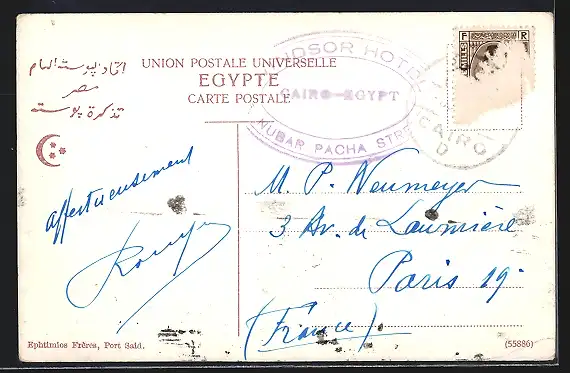 اتحاد پوسته العام
مصر
تذكرة پوسته
UNION POSTALE UNIVERSELLE
EGYPTE
CARTE POSTALE
WINDSOR HOTEL
CAIRO-EGYPT
NUBAR PACHA STR
F R
MILLS
CAIRO
D
affectueusement
M. P. Neumeyer
3 Av. de Laumière
Paris 19e
(France)
Ephtimios Frères, Port Said.
(55886)